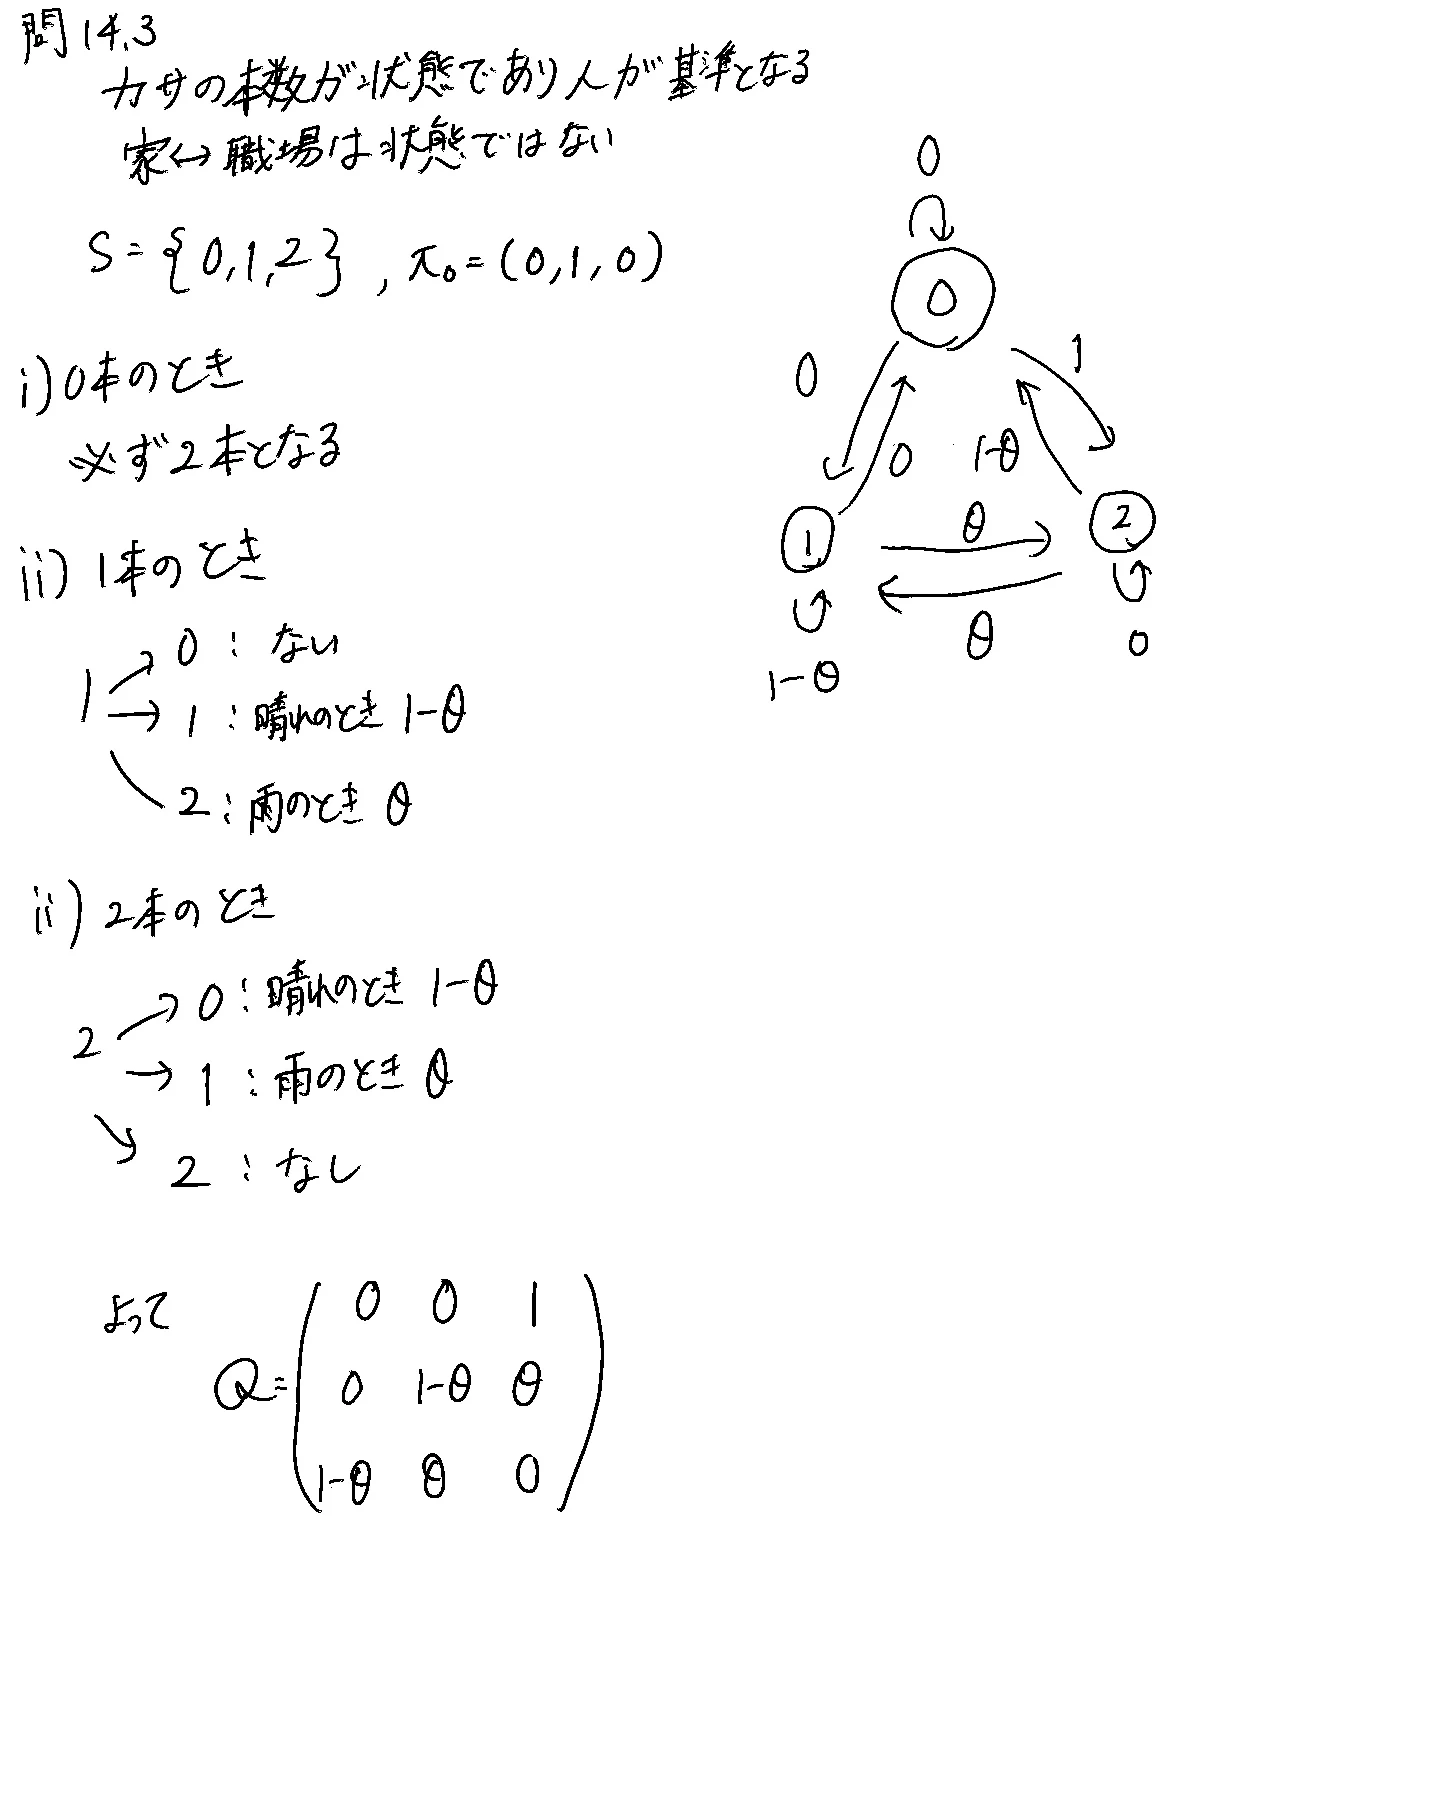 問14.3
カサの本数が状態であり人が基準となる
家↔職場は状態ではない
S={0,1,2}, π₀=(0,1,0)
i) 0本のとき
必ず2本となる
ii) 1本のとき
1 → 0 : ない
→ 1 : 晴れのとき 1-θ
2 : 雨のとき θ
ii) 2本のとき
2 → 0 : 晴れのとき 1-θ
→ 1 : 雨のとき θ
→ 2 : なし
よって
Q= ( 0 0 1
0 1-θ θ
1-θ θ 0 )
0
0
0 1
0 1-θ
1 θ 2
θ 0
1-θ